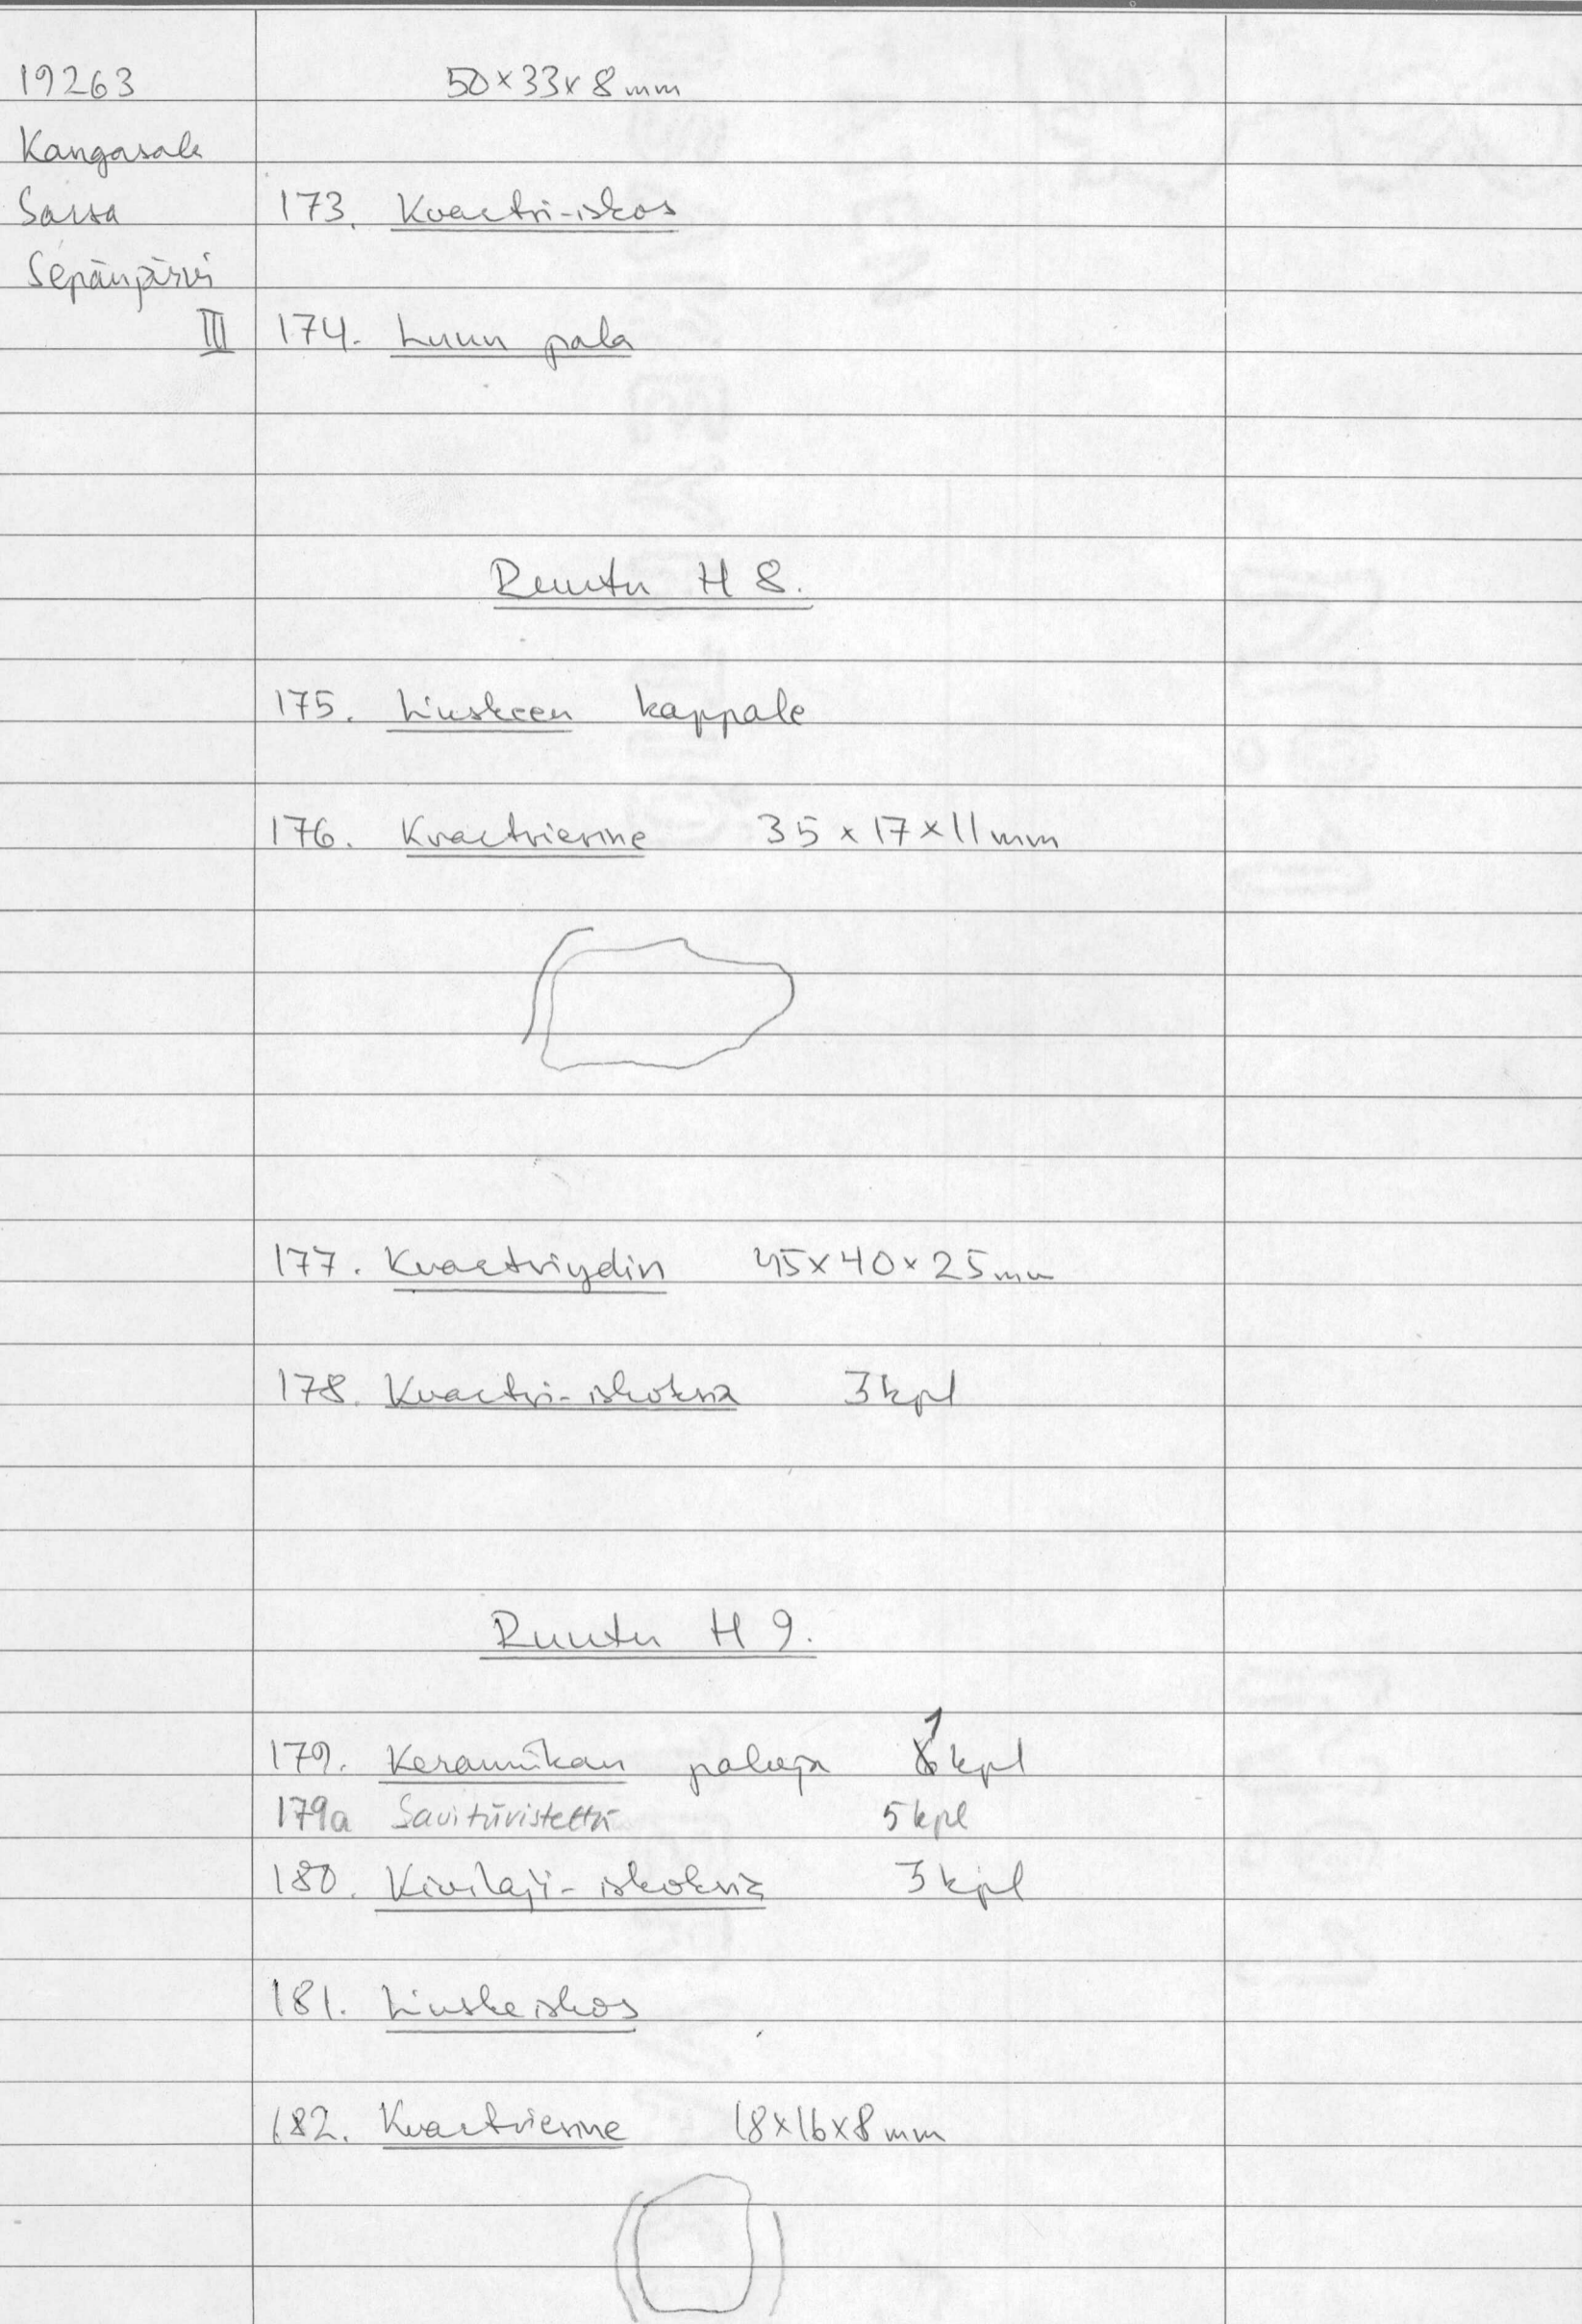 19263 50×33×8mm
Kangasala
Sarsa 173. Kvartsi-iskos
Sepänjärvi
III 174. Luun pala
Ruutu H 8.
175. Liuskeen kappale
176. Kvartsiesine 35×17×11mm
177. Kvartsiydin 45×40×25mm
178. Kvartsi-iskoksia 3kpl
Ruutu H 9.
1
179. Keramiikan paloja 6kpl
179a Savitiivistettä 5kpl
180. Kivilaji-iskoksia 3kpl
181. Liuskeiskos
182. Kvartsiesine 18×16×8mm